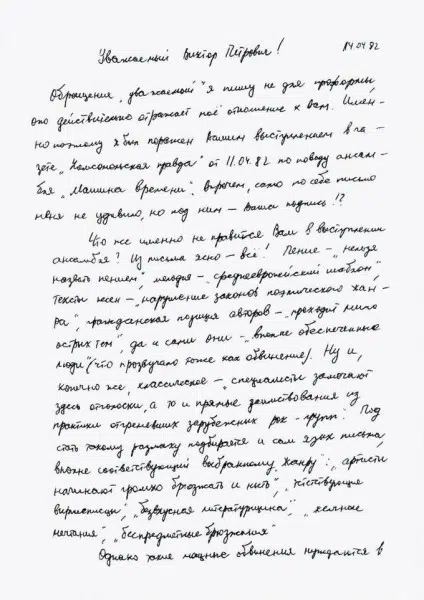 14.04.82
Уважаемый Виктор Петрович!
Обращение „уважаемый" я пишу не для проформы,
оно действительно отражает моё отношение к Вам. Имен-
но поэтому я был поражен Вашим выступлением в га-
зете „Комсомольская правда" от 11.04.82 по поводу ансам-
бля „Машина времени". Впрочем, само по себе письмо
меня не удивило, но под ним — Ваша подпись!?
Что же именно не нравится Вам в выступлении
ансамбля? Из письма ясно – всё! Пение – „нельзя
назвать пением", мелодия – „среднеевропейский шаблон",
тексты песен – „нарушение законов поэтического жан-
ра", гражданская позиция авторов – „проходит мимо
острых тем", да и сами они – „вполне обеспеченные
люди" (что прозвучало тоже как обвинение). Ну и,
конечно же, классическое – „специалисты замечают
здесь отголоски, а то и прямые заимствования из
практики отгремевших зарубежных рок-групп". Под
стать такому размаху подбирается и сам язык письма,
вполне соответствующий выбранному „жанру": „артисты
начинают громко брюзжать и ныть",
вирмаписцы", „безвкусная литературщина",
нечтания", „беспредметные брюзжания"
Однако такие мощные обвинения нуждаются в